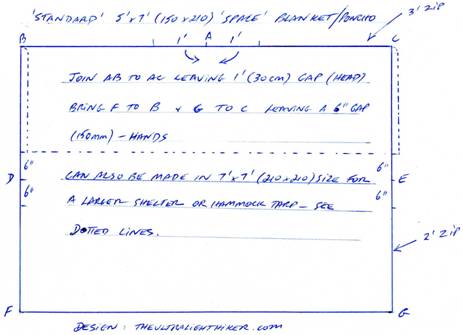 'STANDARD' 5'x7' (150x210) 'SPACE' BLANKET/PONCHO
3' ZIP
B 1' A 1' C
JOIN AB TO AC LEAVING 1' (30CM) GAP (HEAD)
BRING F TO B & G TO C LEAVING A 6" GAP
(150MM) - HANDS
6" 6"
D E
CAN ALSO BE MADE IN 7'x7' (210x210) SIZE FOR
6" 6"
A LARGER SHELTER OR HAMMOCK TARP - SEE
DOTTED LINES.
2' ZIP
F G
DESIGN: THEULTRALIGHTHIKER.COM